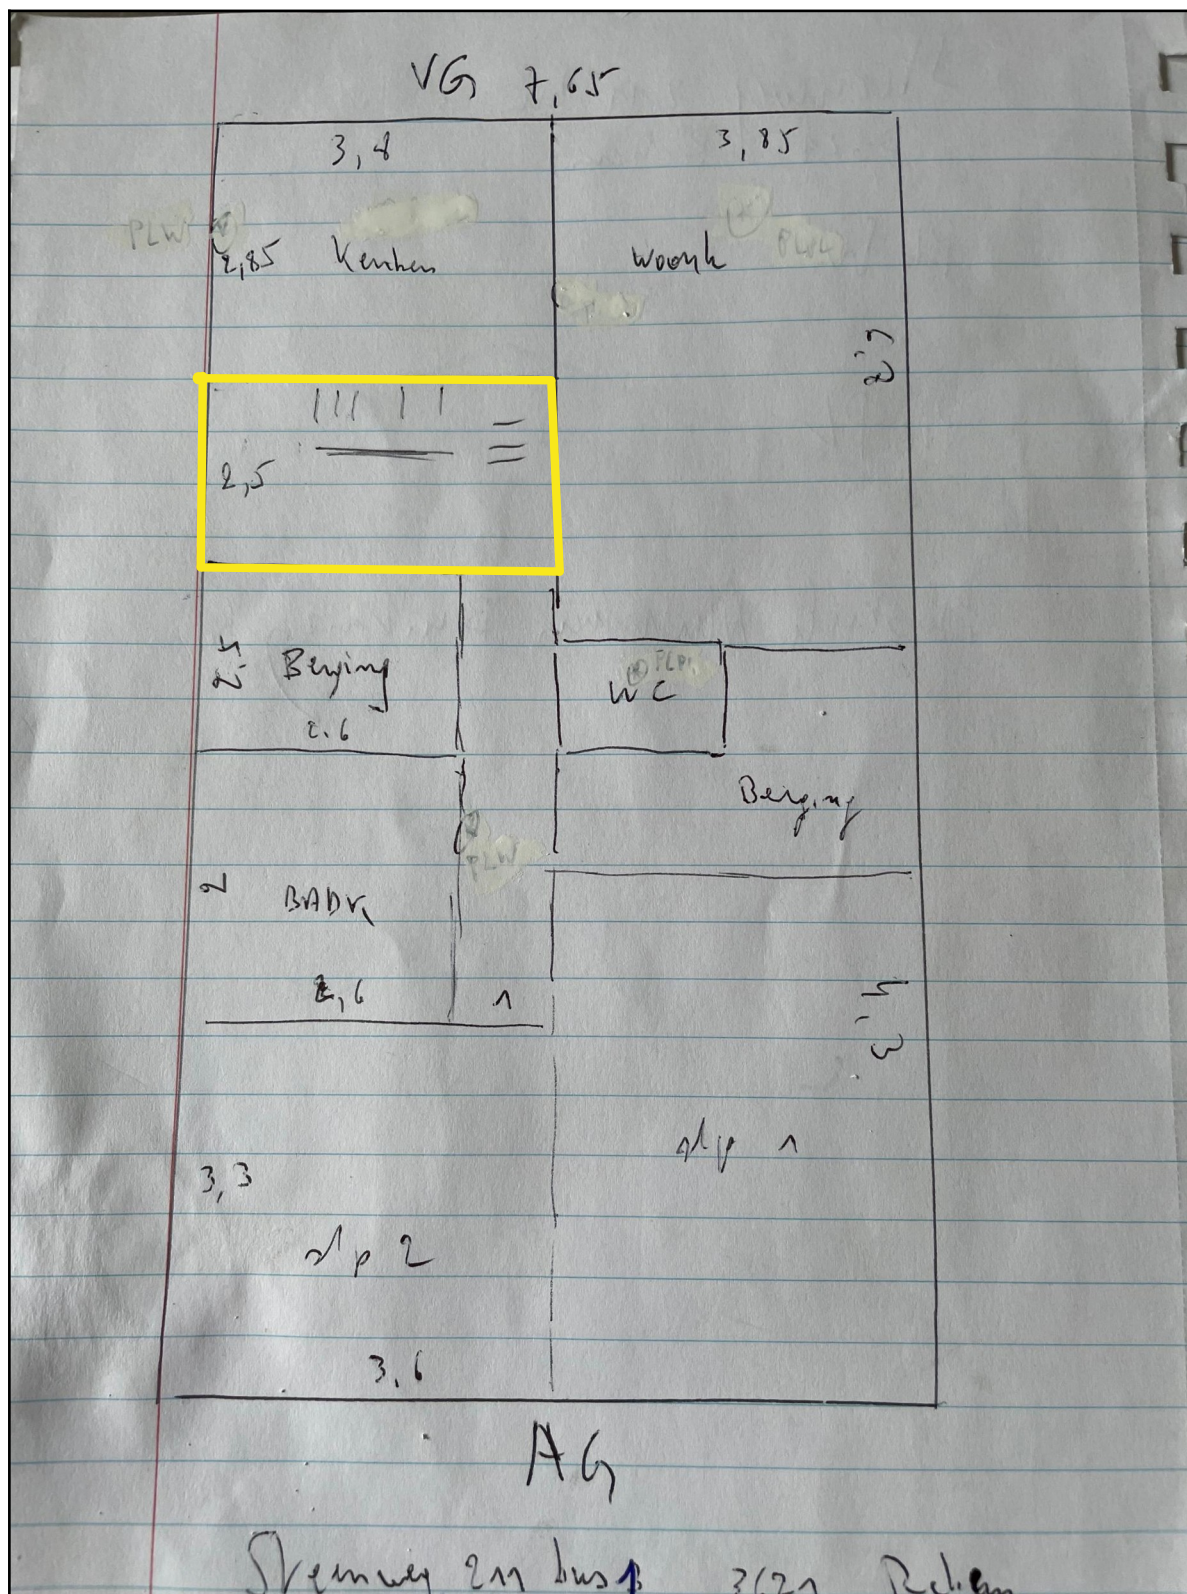 VG 7,65
3,8
3,85
PLW
2,85 Keuken
Woonk
PLPL
2,5
Berging
2.6
PLPL
WC
Berging
PLW
2
BADK
2,6
1
3,3
slp 1
slp 2
3,6
AG
Steenweg 211 bus 1 3621 Rekem